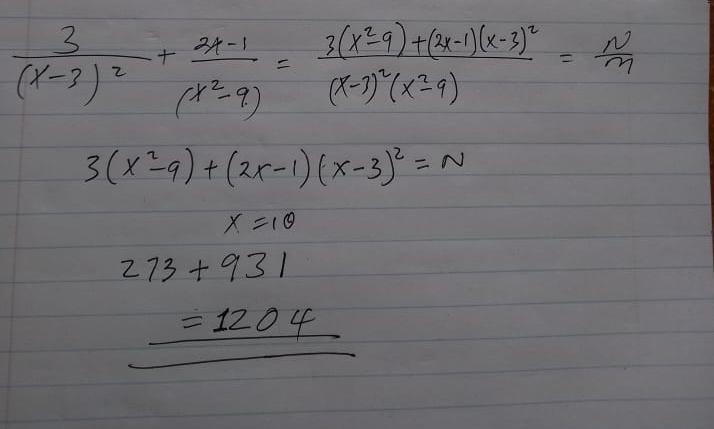 3/(x-3)² + 2x-1/(x²-9) = 3(x²-9)+(2x-1)(x-3)²/(x-3)²(x²-9) = N/m
3(x²-9)+(2x-1)(x-3)² = N
x = 10
273 + 931
= 1204